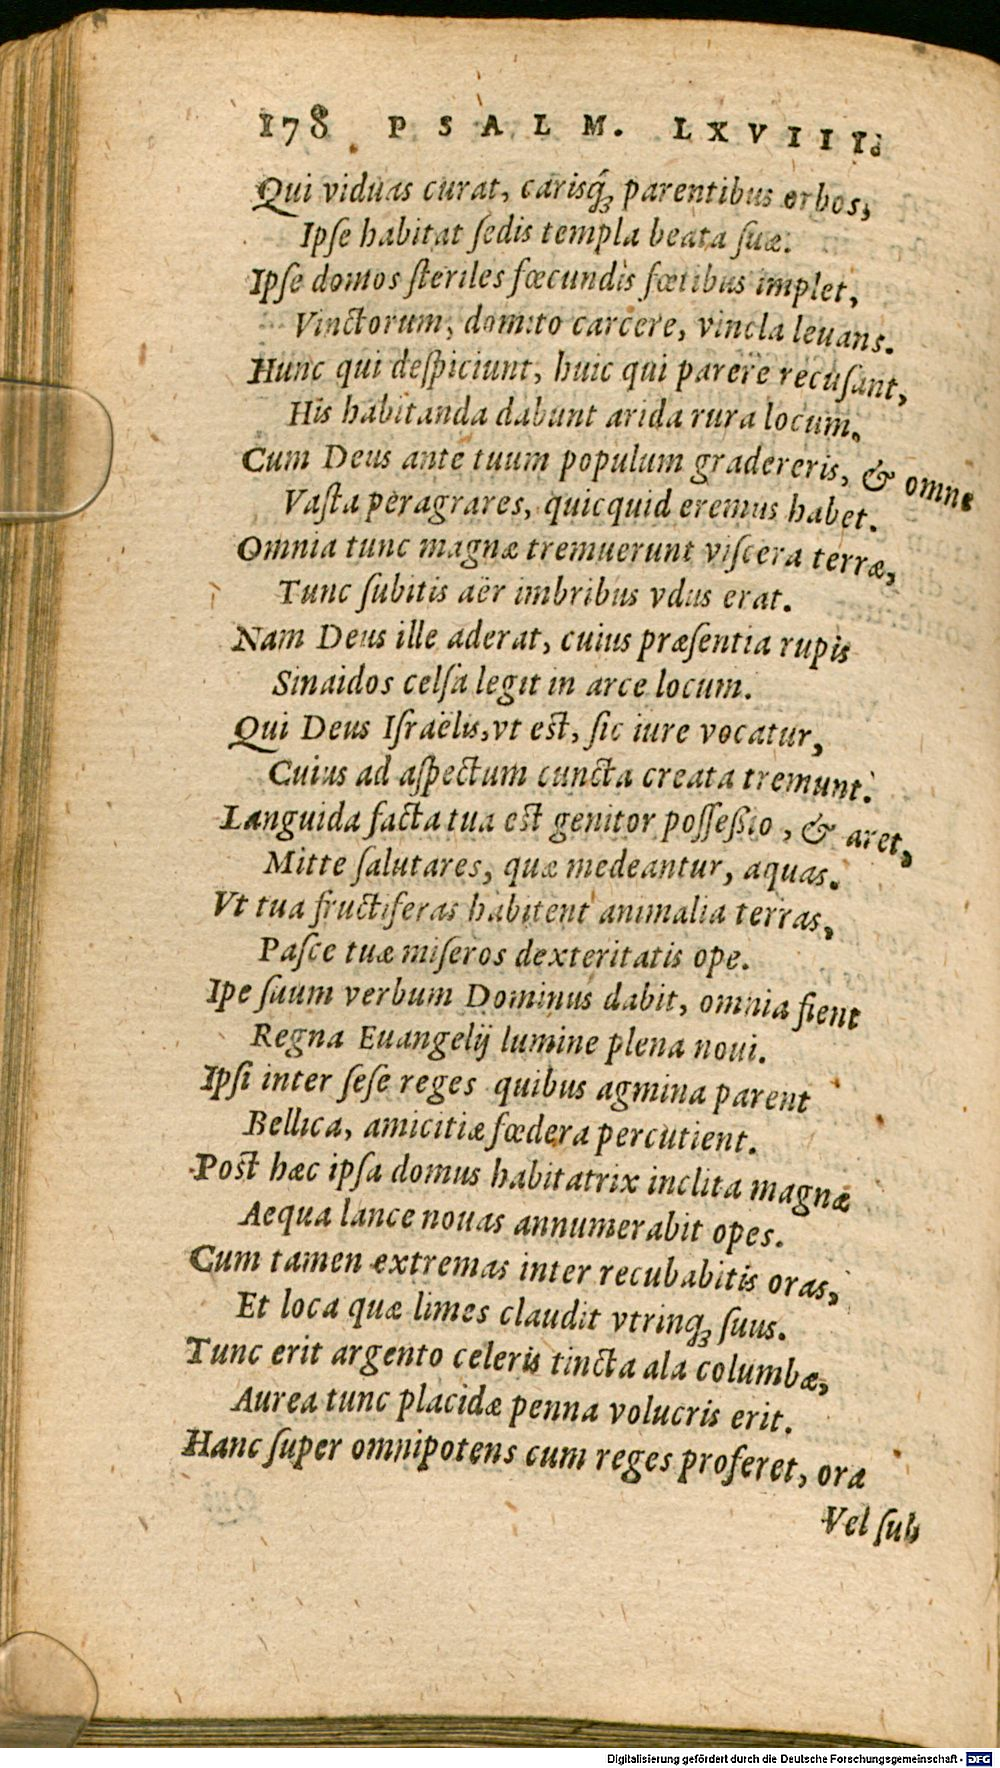 178 PSALM. LXVIII.
Qui viduas curat, carisq́ꝫ parentibus orbos,
Ipſe habitat ſedis templa beata ſuæ.
Ipſe domos ſteriles fœcundis fœtibus implet,
Vinctorum, domito carcere, vincla leuans.
Hunc qui deſpiciunt, huic qui parere recuſant,
His habitanda dabunt arida rura locum.
Cum Deus ante tuum populum gradereris, & omne
Vaſta peragrares, quicquid eremus habet.
Omnia tunc magnæ tremuerunt viſcera terræ,
Tunc ſubitis aër imbribus vdus erat.
Nam Deus ille aderat, cuius præſentia rupis
Sinaidos celſa legit in arce locum.
Qui Deus Iſraëlis, vt est, ſic iure vocatur,
Cuius ad aſpectum cuncta creata tremunt.
Languida facta tua est genitor poſſeßio, & aret,
Mitte ſalutares, quæ medeantur, aquas.
Vt tua fructiferas habitent animalia terras,
Paſce tuæ miſeros dexteritatis ope.
Ipe ſuum verbum Dominus dabit, omnia fient
Regna Euangelij lumine plena noui.
Ipſi inter ſeſe reges quibus agmina parent
Bellica, amicitiæ fœdera percutient.
Post hæc ipſa domus habitatrix inclita magnæ
Aequa lance nouas annumerabit opes.
Cum tamen extremas inter recubabitis oras,
Et loca quæ limes claudit vtrinqꝫ ſuus.
Tunc erit argento celeris tincta ala columbæ,
Aurea tunc placidæ penna volucris erit.
Hanc ſuper omnipotens cum reges proferet, ora
Vel ſub
Digitalisierung gefördert durch die Deutsche Forschungsgemeinschaft - DFG